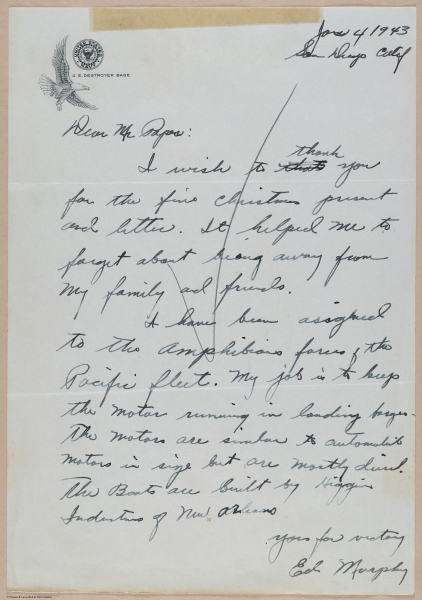 Jan 4 1943
San Diego Calif
UNITED STATES NAVY
U.S. DESTROYER BASE
Dear Mr.
I wish to that thank you
for the fine Christmas present
and letter. It helped me to
forget about being away from
my family ad friends.
I have been assigned
to the Amphibious forces of the
Pacific fleet. My job is to keep
the motor running in landing barges.
The motors are similar to automobile
motors in size but are mostly diesel.
The Boats are built by Higgins
Industries of New Orleans
yours for victory
Ed Murphy